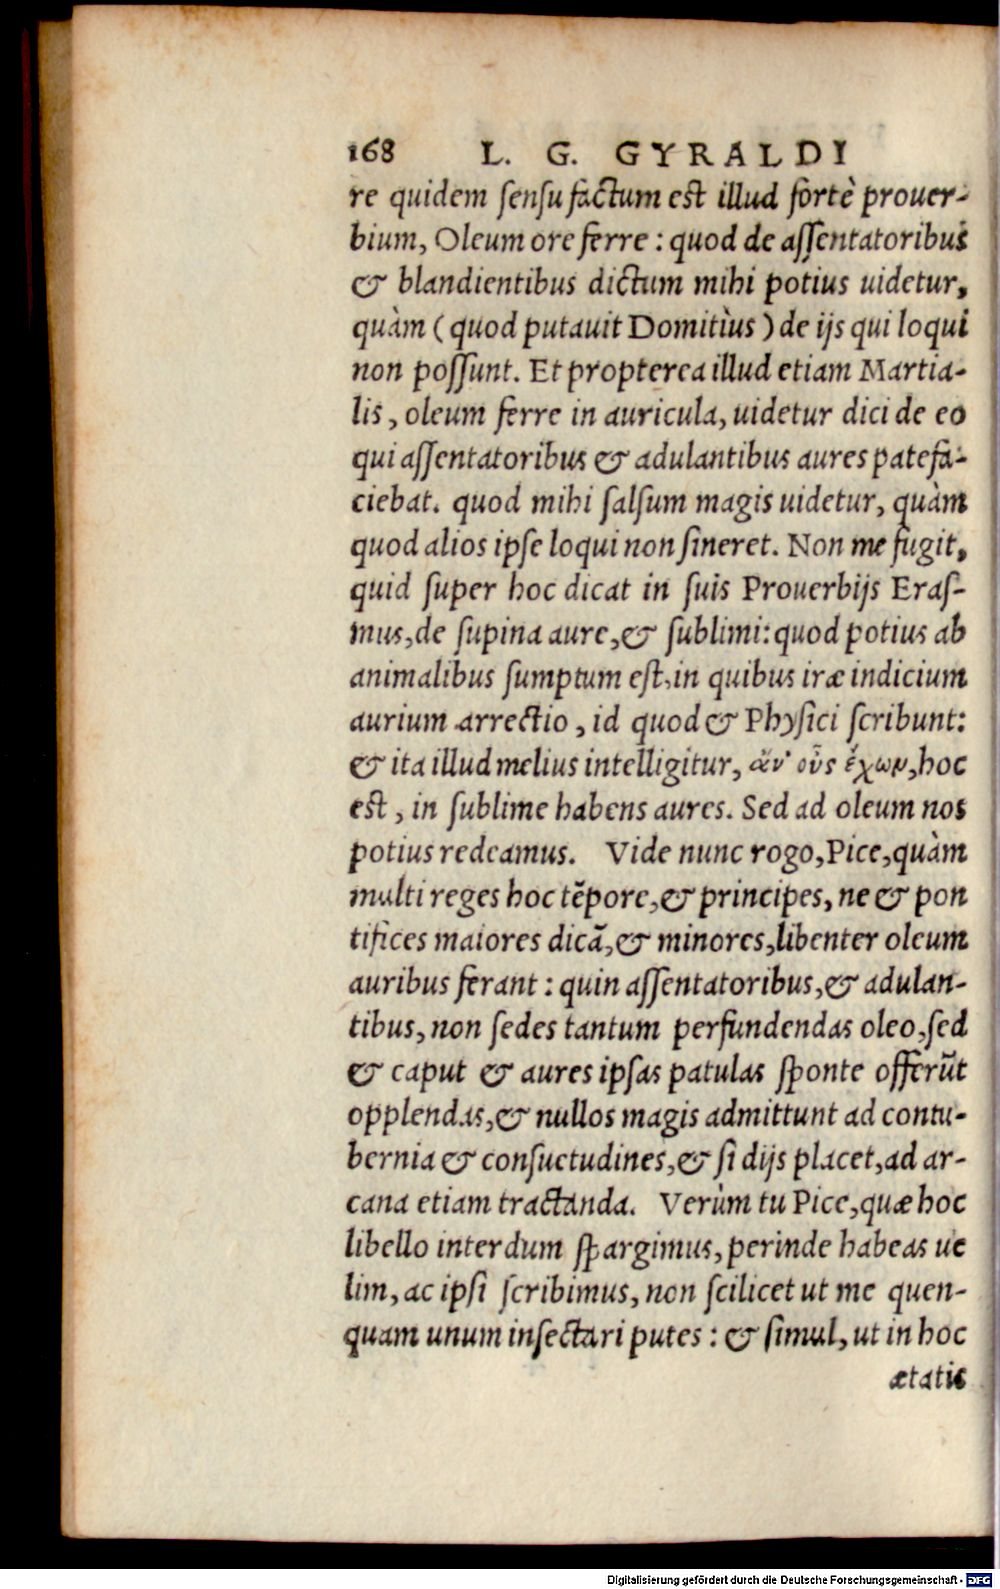 168 L. G. GYRALDI
re quidem ſenſu factum est illud fortè prouer-
bium, Oleum ore ferre : quod de aſſentatoribus
& blandientibus dictum mihi potius uidetur,
quàm ( quod putauit Domitìus ) de ijs qui loqui
non poſſunt. Et propterea illud etiam Martia-
lis, oleum ferre in auricula, uidetur dici de eo
qui aſſentatoribus & adulantibus aures patefa-
ciebat. quod mihi ſalſum magis uidetur, quàm
quod alios ipſe loqui non ſineret. Non me fugit,
quid ſuper hoc dicat in ſuis Prouerbijs Eraſ-
mus, de ſupina aure, & ſublimi: quod potius ab
animalibus ſumptum eſt, in quibus iræ indicium
aurium arrectio, id quod & Phyſici ſcribunt:
& ita illud melius intelligitur, ἄν' οὖς ἔχων, hoc
est, in ſublime habens aures. Sed ad oleum nos
potius redeamus. Vide nunc rogo, Pice, quàm
multi reges hoc tẽpore, & principes, ne & pon
tifices maiores dicã, & minores, libenter oleum
auribus ferant : quin aſſentatoribus, & adulan-
tibus, non ſedes tantum perfundendas oleo, ſed
& caput & aures ipſas patulas ſponte offerũt
opplendas, & nullos magis admittunt ad contu-
bernia & conſuetudines, & ſi dijs placet, ad ar-
cana etiam tractanda. Verùm tu Pice, quæ hoc
libello interdum ſpargimus, perinde habeas ue
lim, ac ipſi ſcribimus, non ſcilicet ut me quen-
quam unum inſectari putes : & ſimul, ut in hoc
ætatis
Digitalisierung gefördert durch die Deutsche Forschungsgemeinschaft - DFG